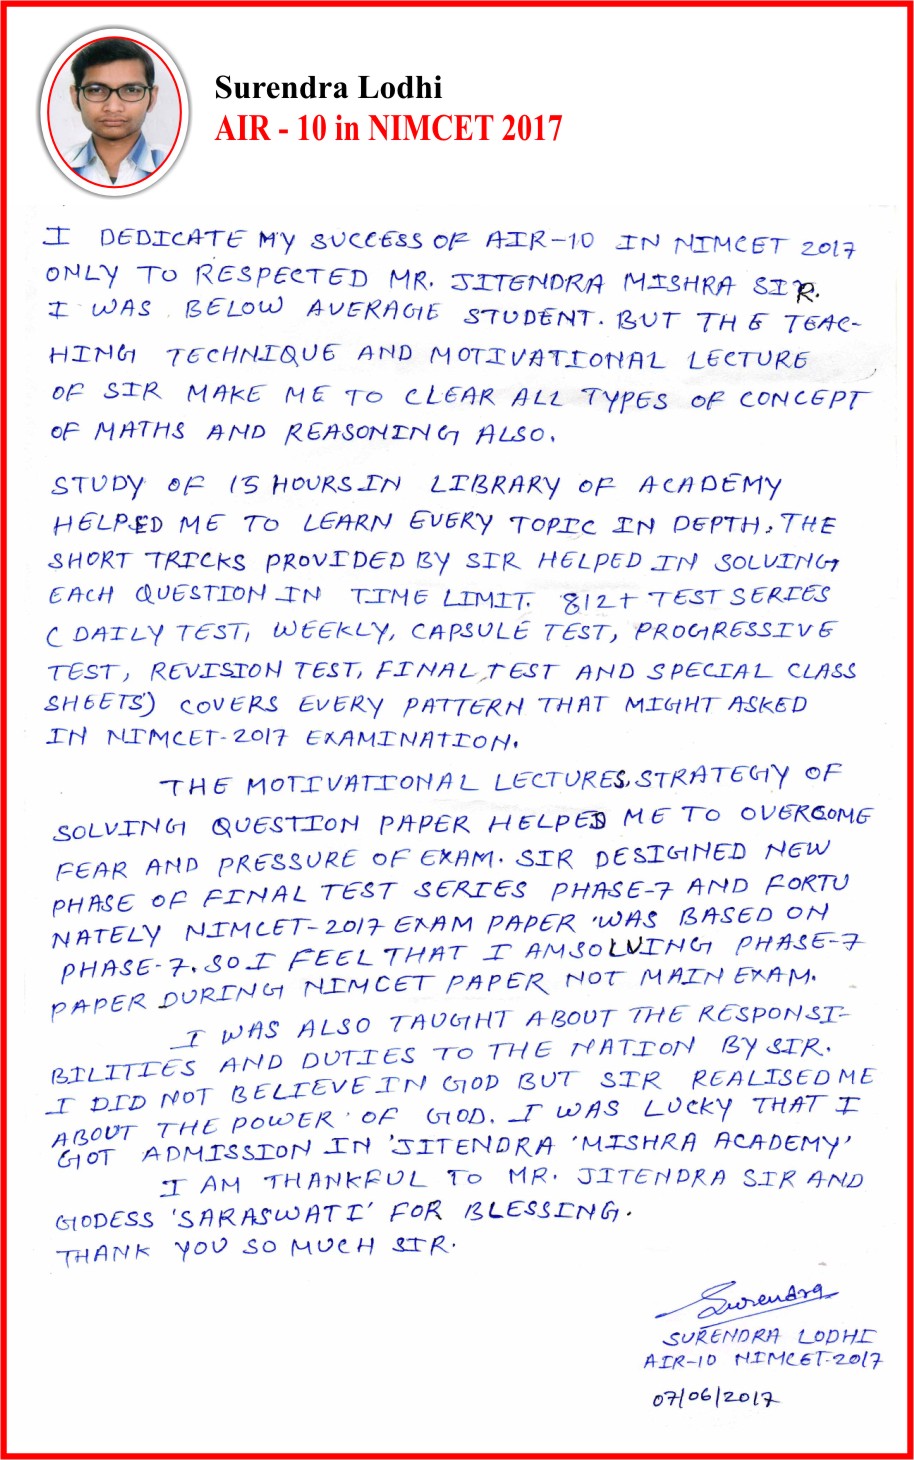 Surendra Lodhi
AIR - 10 in NIMCET 2017
I DEDICATE MY SUCCESS OF AIR-10 IN NIMCET 2017
ONLY TO RESPECTED MR. JITENDRA MISHRA SIR.
I WAS BELOW AVERAGE STUDENT. BUT THE TEAC-
HING TECHNIQUE AND MOTIVATIONAL LECTURE
OF SIR MAKE ME TO CLEAR ALL TYPES OF CONCEPT
OF MATHS AND REASONING ALSO.
STUDY OF 15 HOURS IN LIBRARY OF ACADEMY
HELPED ME TO LEARN EVERY TOPIC IN DEPTH. THE
SHORT TRICKS PROVIDED BY SIR HELPED IN SOLVING
EACH QUESTION IN TIME LIMIT. 812+ TEST SERIES
(DAILY TEST, WEEKLY, CAPSULE TEST, PROGRESSIVE
TEST, REVISION TEST, FINAL TEST AND SPECIAL CLASS
SHEETS) COVERS EVERY PATTERN THAT MIGHT ASKED
IN NIMCET-2017 EXAMINATION.
THE MOTIVATIONAL LECTURES, STRATEGY OF
SOLVING QUESTION PAPER HELPED ME TO OVERCOME
FEAR AND PRESSURE OF EXAM. SIR DESIGNED NEW
PHASE OF FINAL TEST SERIES PHASE-7 AND FORTU
NATELY NIMCET-2017 EXAM PAPER WAS BASED ON
PHASE-7. SO I FEEL THAT I AM SOLVING PHASE-7
PAPER DURING NIMCET PAPER NOT MAIN EXAM.
I WAS ALSO TAUGHT ABOUT THE RESPONSI-
BILITIES AND DUTIES TO THE NATION BY SIR.
I DID NOT BELIEVE IN GOD BUT SIR REALISED ME
ABOUT THE POWER OF GOD. I WAS LUCKY THAT I
GOT ADMISSION IN 'JITENDRA 'MISHRA ACADEMY'
I AM THANKFUL TO MR. JITENDRA SIR AND
GODESS 'SARASWATI' FOR BLESSING.
THANK YOU SO MUCH SIR.
Surendra
SURENDRA LODHI
AIR-10 NIMCET-2017
07/06/2017